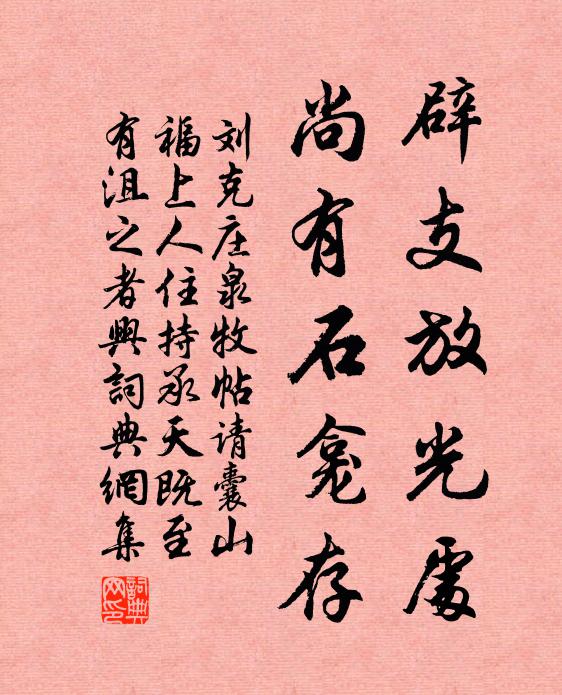 辟支放光處
尚有石龛存
刘克庄泉牧帖请囊山
福上人住持承天既至
有沮之者興詞典網集
詞典網印